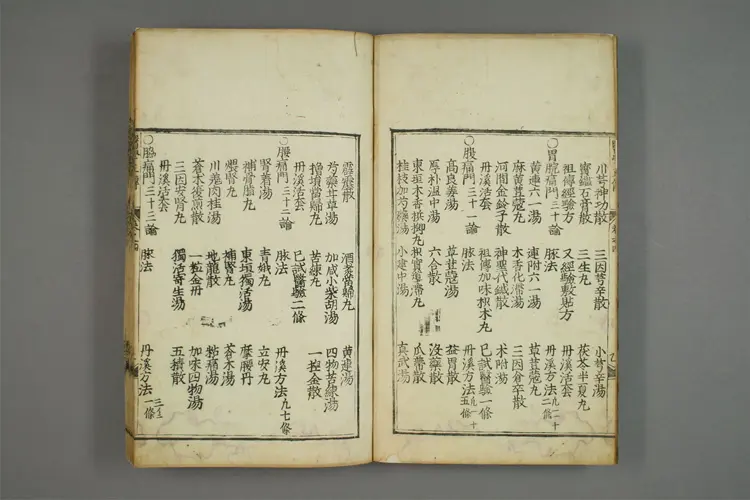 川芎神功散　三因芎辛散　小芎辛湯
寳鑑石膏散　三生丸　茯苓半夏丸
祖傳經驗方　又經驗敷貼方　丹溪活套
○胃脘痛門三十一論　脉法　丹溪方法凡一十二條
黄連六一湯　連附六一湯　草荳蔻丸
麻黄草荳蔻丸　木香化滯湯　三因倉卒散
河間金鈴子散　神聖代鍼散　术附湯
丹溪活套　祖傳加味枳术丸　已試醫驗一條
○腹痛門三十一論　脉法　丹溪方法凡一十五條
高良薑湯　草荳蔻湯　益胃散
厚朴温中湯　六合散　没藥散
東垣木香檳榔丸　枳實導滯丸　瓜蒂散
桂枝加芍藥湯　小建中湯　真武湯
霹靂散　酒煮當歸丸　黄連湯
芍藥甘草湯　加减小柴胡湯　四物苦練湯
當歸丸　苦練丸　一捻金散
丹溪活套　已試醫驗二條
○腰痛門三十二論　脉法　丹溪方法凡七條
腎著湯　青娥丸　立安丸
補骨脂丸　東垣獨活湯　摩腰丹
煨腎丸　補腎丸　蒼术湯
川芎肉桂湯　地龍散　粘痛湯
蒼术散　一粒金丹　加味四物湯
三因安腎丸　獨活寄生湯　五積散
丹溪活套
○脇痛門三十三論　脉法　丹溪方法一條